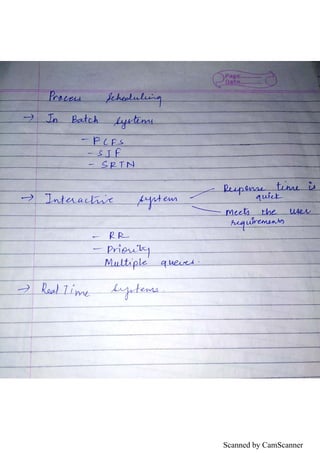 Page
Date
Process Scheduling
→ In Batch Systems
- FCFS
- SJF
- SRTN
→ Interactive System
Response time is quick
meets the user requirements
- RR
- Priority
Multiple queues.
→ Real Time Systems.
Scanned by CamScanner